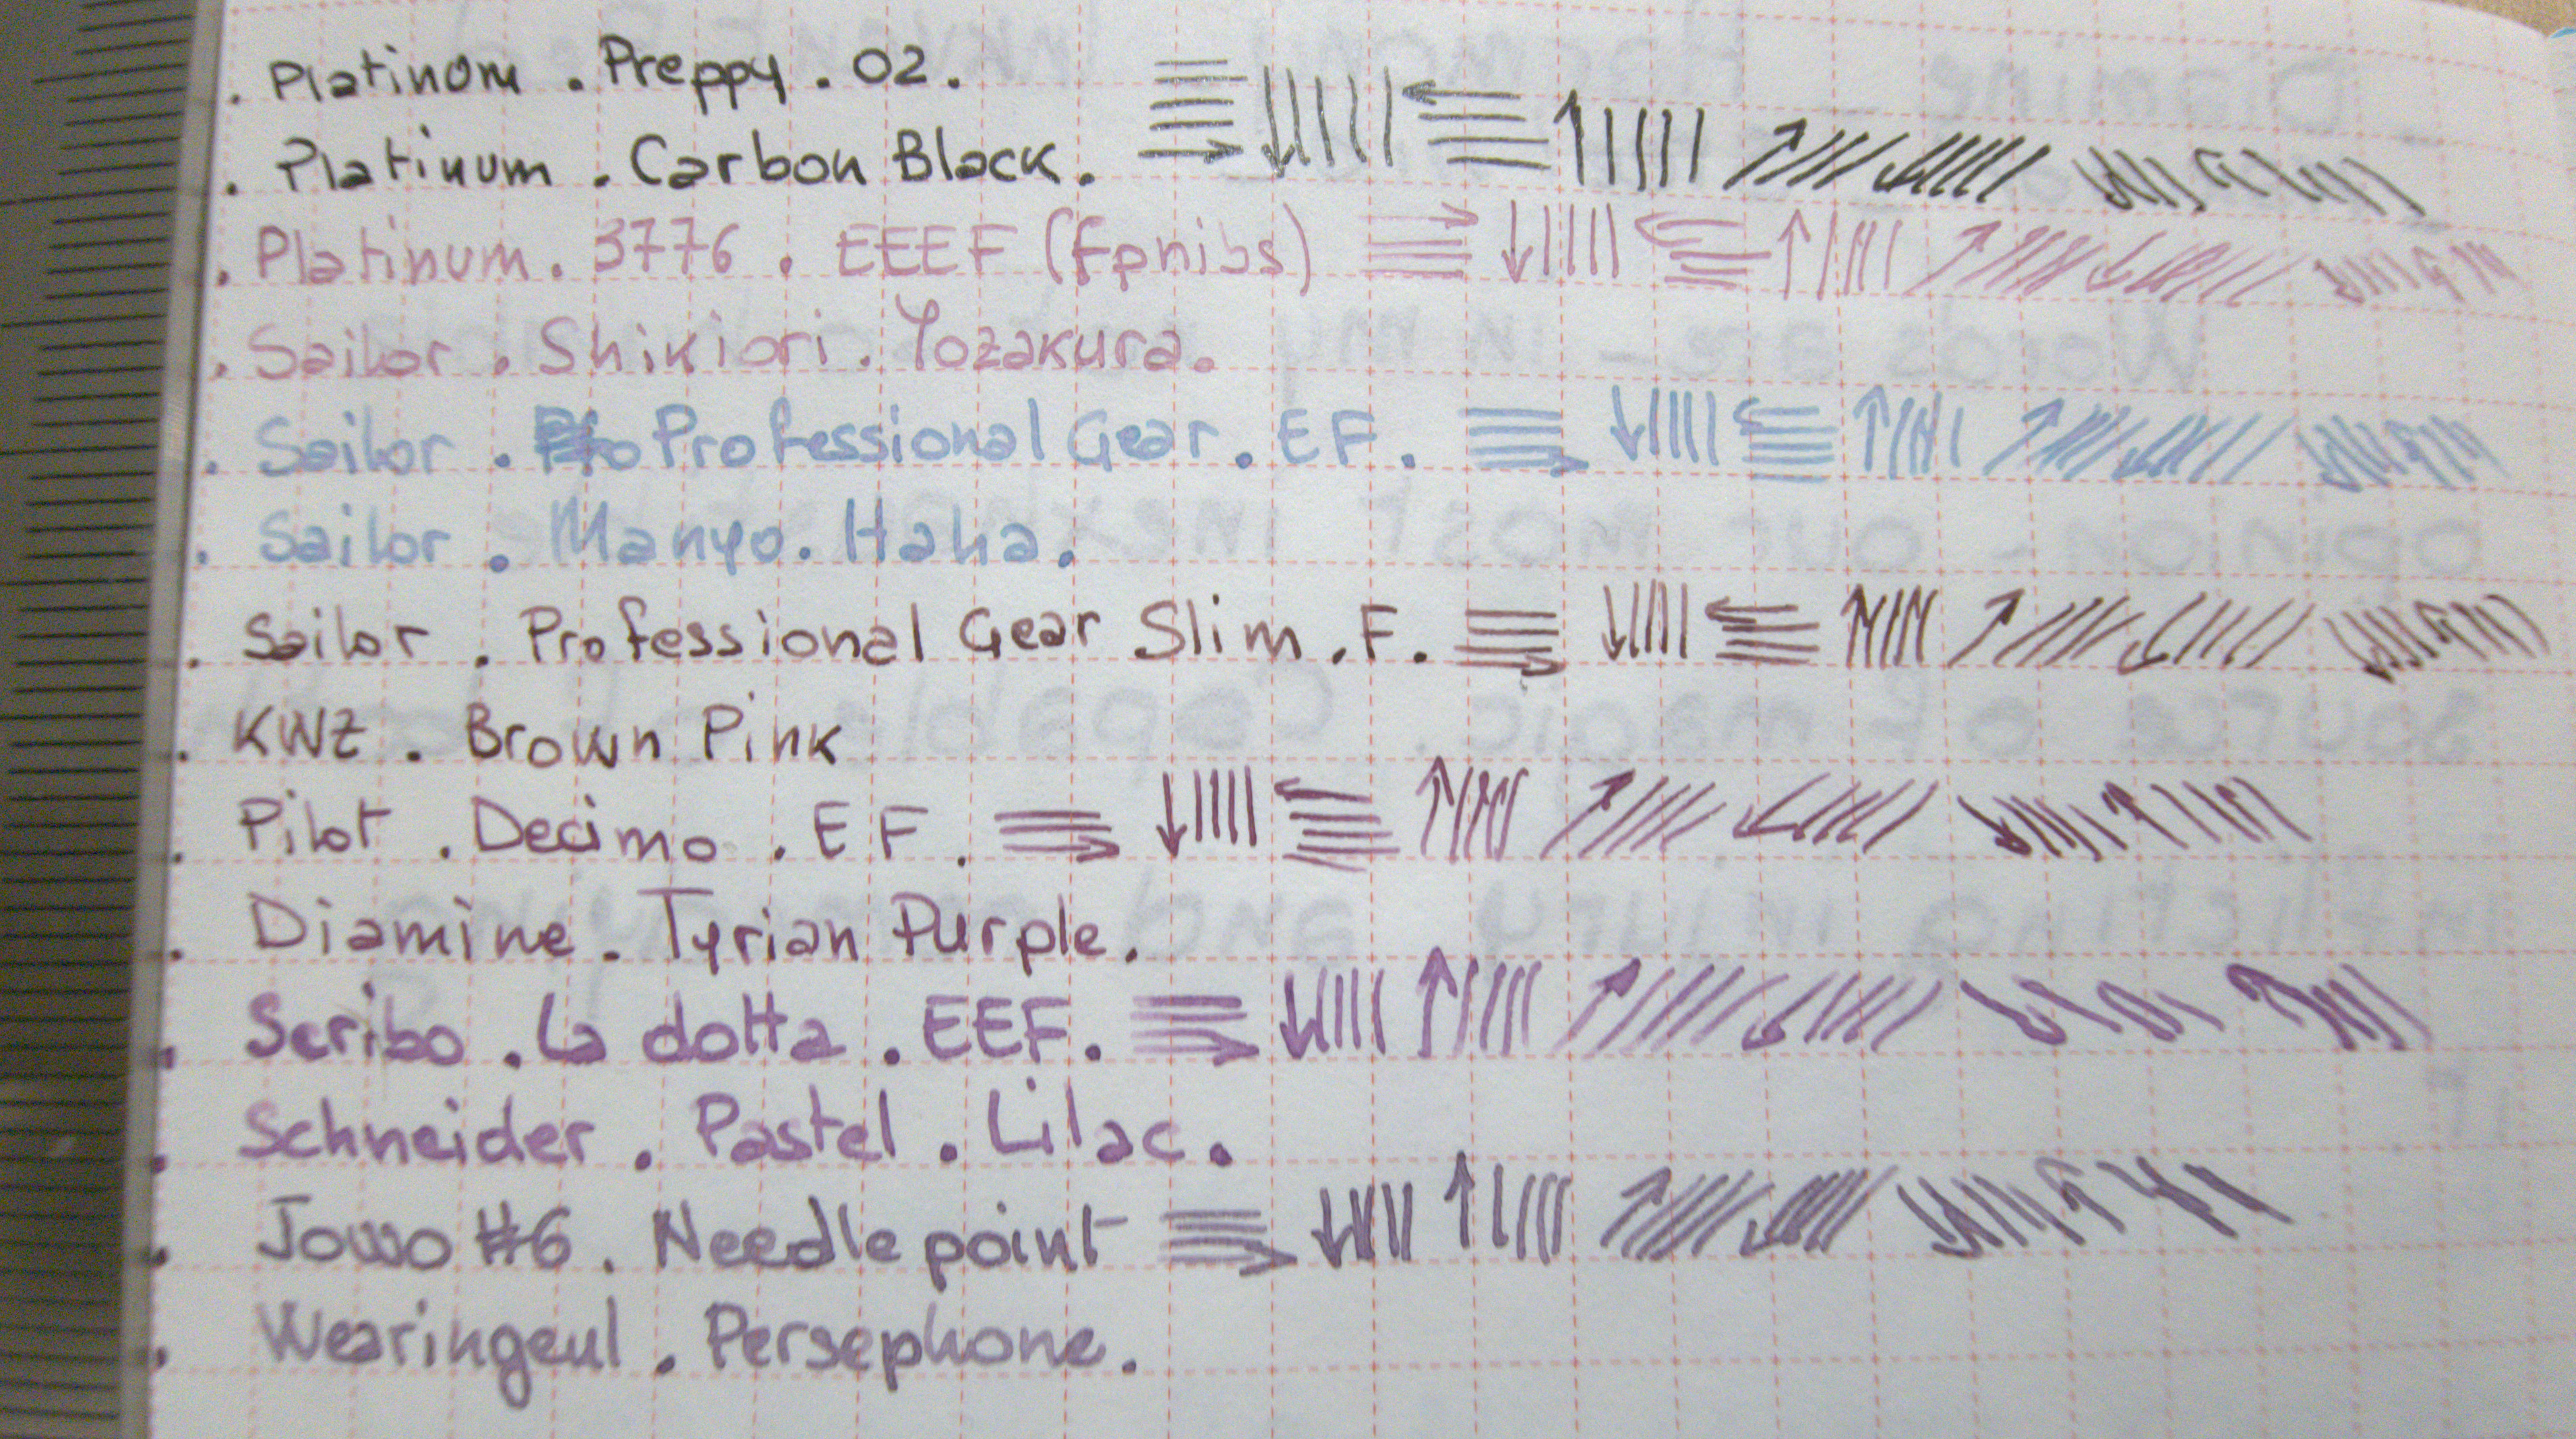 . Platinum . Preppy . 02 .
. Platinum . Carbon Black .
. Platinum . 3776 . EEEF (fpnibs)
. Sailor . Shikiori . Yozakura .
. Sailor . Professional Gear . EF .
. Sailor . Manyo . Haha .
. Sailor . Professional Gear Slim . F .
. KWZ . Brown Pink
. Pilot . Decimo . EF .
. Diamine . Tyrian Purple .
. Scribo . La dotta . EEF .
. Schneider . Pastel . Lilac .
. Jowo #6 . Needlepoint
. Wearingeul . Persephone .